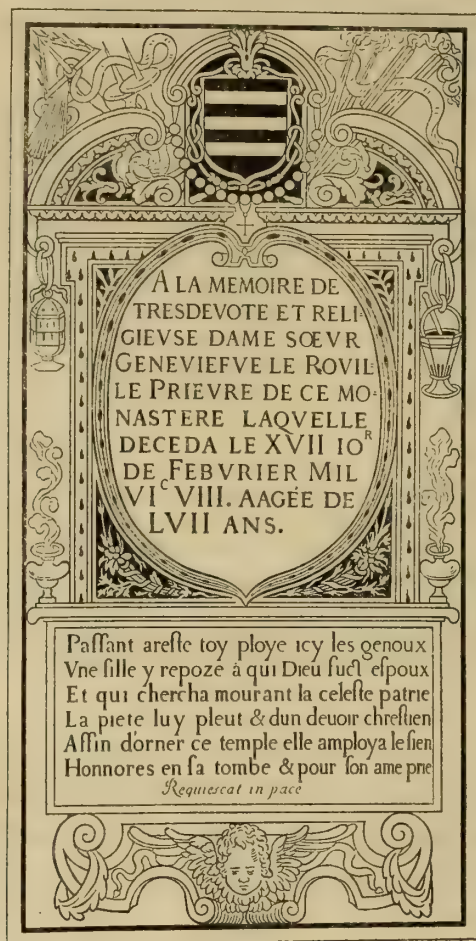 A LA MEMOIRE DE
TRESDEVOTE ET RELI-
GIEVSE DAME SŒVR
GENEVIEFVE LE ROVIL-
LE PRIEVRE DE CE MO-
NASTERE LAQVELLE
DECEDA LE XVII IOᴿ
DE FEBVRIER MIL
VIᶜ VIII. AAGÉE DE
LVII ANS.
Paſſant areſte toy ploye icy les genoux
Vne fille y repoze à qui Dieu fuct eſpoux
Et qui chercha mourant la celeſte patrie
La piete luy pleut & dun deuoir chreſtien
Aſſin d'orner ce temple elle amploya le ſien
Honnores en ſa tombe & pour ſon ame prie
Requiescat in pace